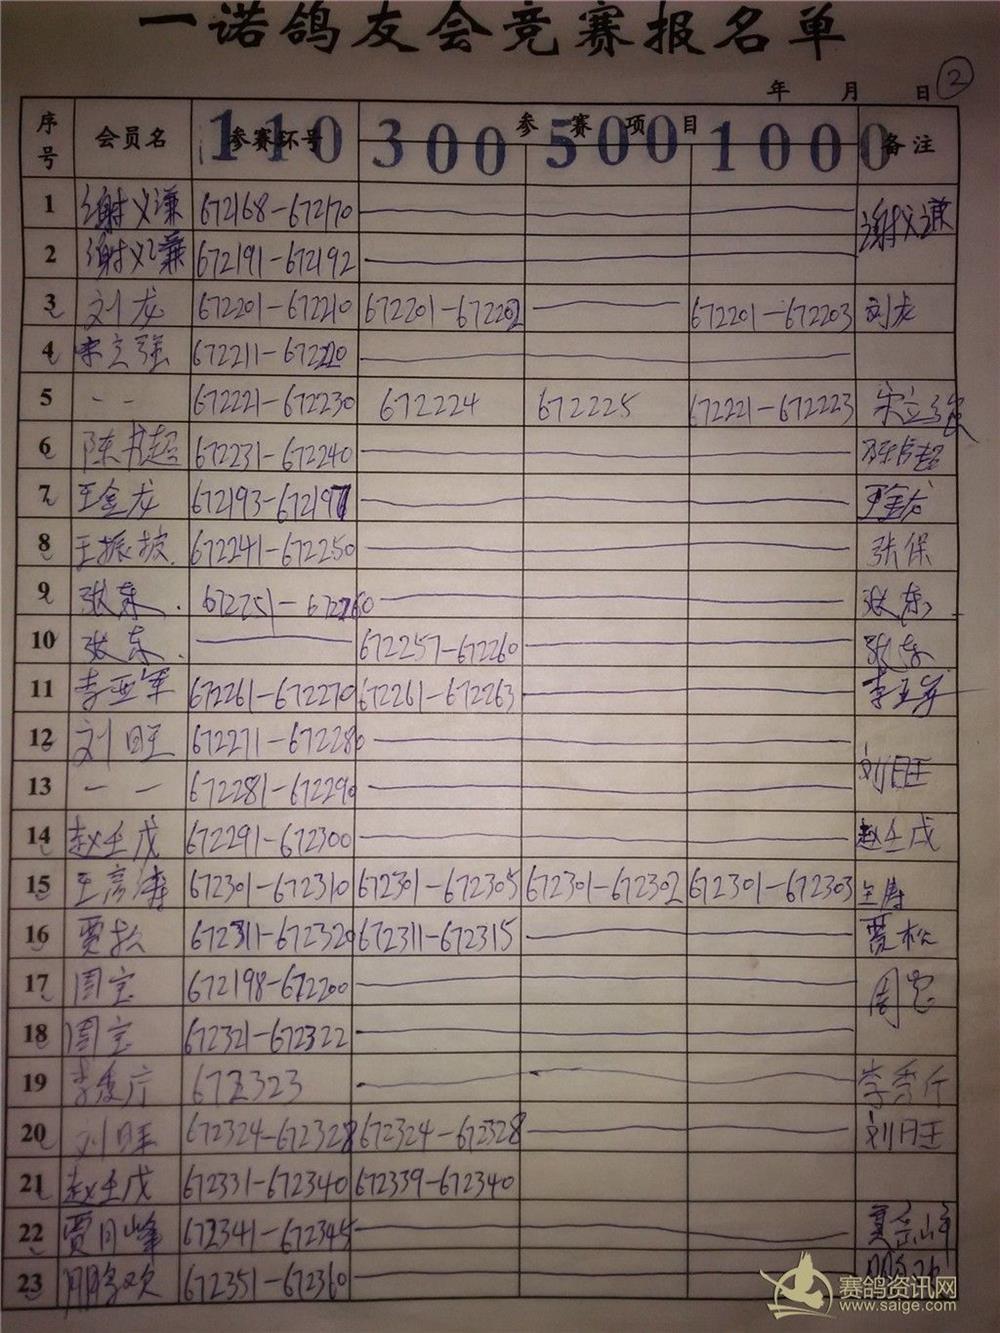 一诺鸽友会竞赛报名单
年 月 日 2
序号 会员名 参赛环号 110 参赛项目 300 500 1000 备注
1 谢义谦 672168-672170 谢义谦
2 谢义谦 672191-672192
3 刘龙 672201-672210 672201-672202 672201-672203 刘龙
4 宋立强 672211-672220
5 -- 672221-672230 672224 672225 672221-672223 宋立强
6 陈书超 672231-672240 陈书超
7 王金龙 672193-672197 王金龙
8 王振 672241-672250 张保
9 张东 672251-672260 张东
10 张东 672257-672260 张东
11 李亚军 672261-672270 672261-672263 李亚军
12 刘旺 672271-672280 刘旺
13 -- 672281-672290
14 赵壬戊 672291-672300 赵壬戊
15 王彦涛 672301-672310 672301-672305 672301-672302 672301-672303 王涛
16 贾松 672311-672320 672311-672315 贾松
17 周宝 672198-672200 周宝
18 周宝 672321-672322
19 李秀 672323 李秀
20 刘旺 672324-672328 672324-672328 刘日王
21 赵壬戊 672331-672340 672339-672340
22 贾月峰 672341-672345
23 672351-672360
赛鸽资讯网
www.saige.com